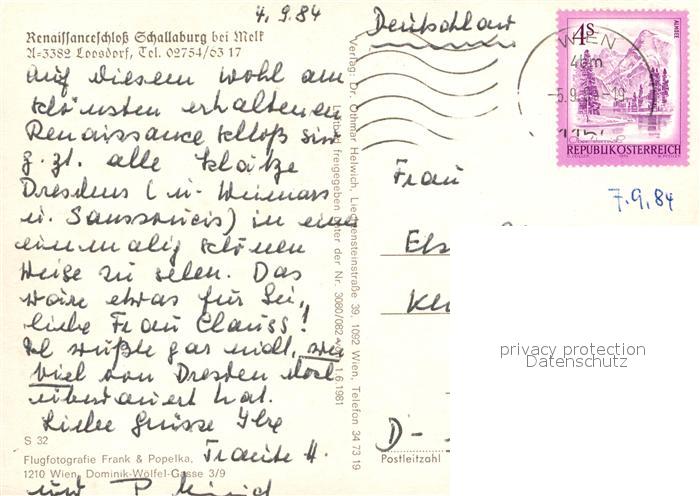 4.9.84
Deutschland
Renaissanceschloß Schallaburg bei Melk
A-3382 Loosdorf, Tel. 02754/63 17
Auf diesem wohl am
schönsten erhaltenen
Renaissance schloß sind
z. zt. alle Schätze
Dresdens (u. Weimars
u. Sanssoucis) in einer
einmalig schönen
Weise zu sehen. Das
wäre etwas für Sie,
liebe Frau Clauss!
Ich wußte gar nicht, wie
viel von Dresden doch
überdauert hat.
Liebe Grüsse Ihre
Traute H.
und
S 32
Flugfotografie Frank & Popelka,
1210 Wien, Dominik-Wölfel-Gasse 3/9
Verlag: Dr. Othmar Helwich, Liechtensteinstraße 39, 1092 Wien, Telefon 34 73 19
Luftbild freigegeben unter der Nr. 3080/082 1.6.1981
4S
ALMSEE
WIEN
5.9.
-19
REPUBLIK ÖSTERREICH
7.9.84
Frau
D-
Postleitzahl
privacy protection
Datenschutz